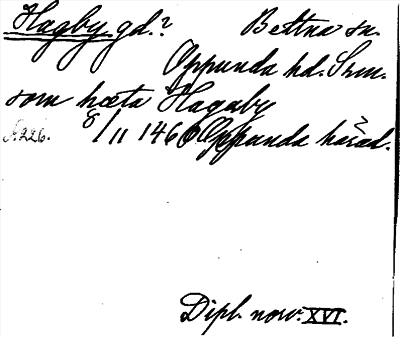 Hagby gd.? Bettna sn.
Oppunda hd. Srm.
som hæta Hagaby
S. 226. 8/11 1460 Oppunda härad.
Dipl. norv. XVI.